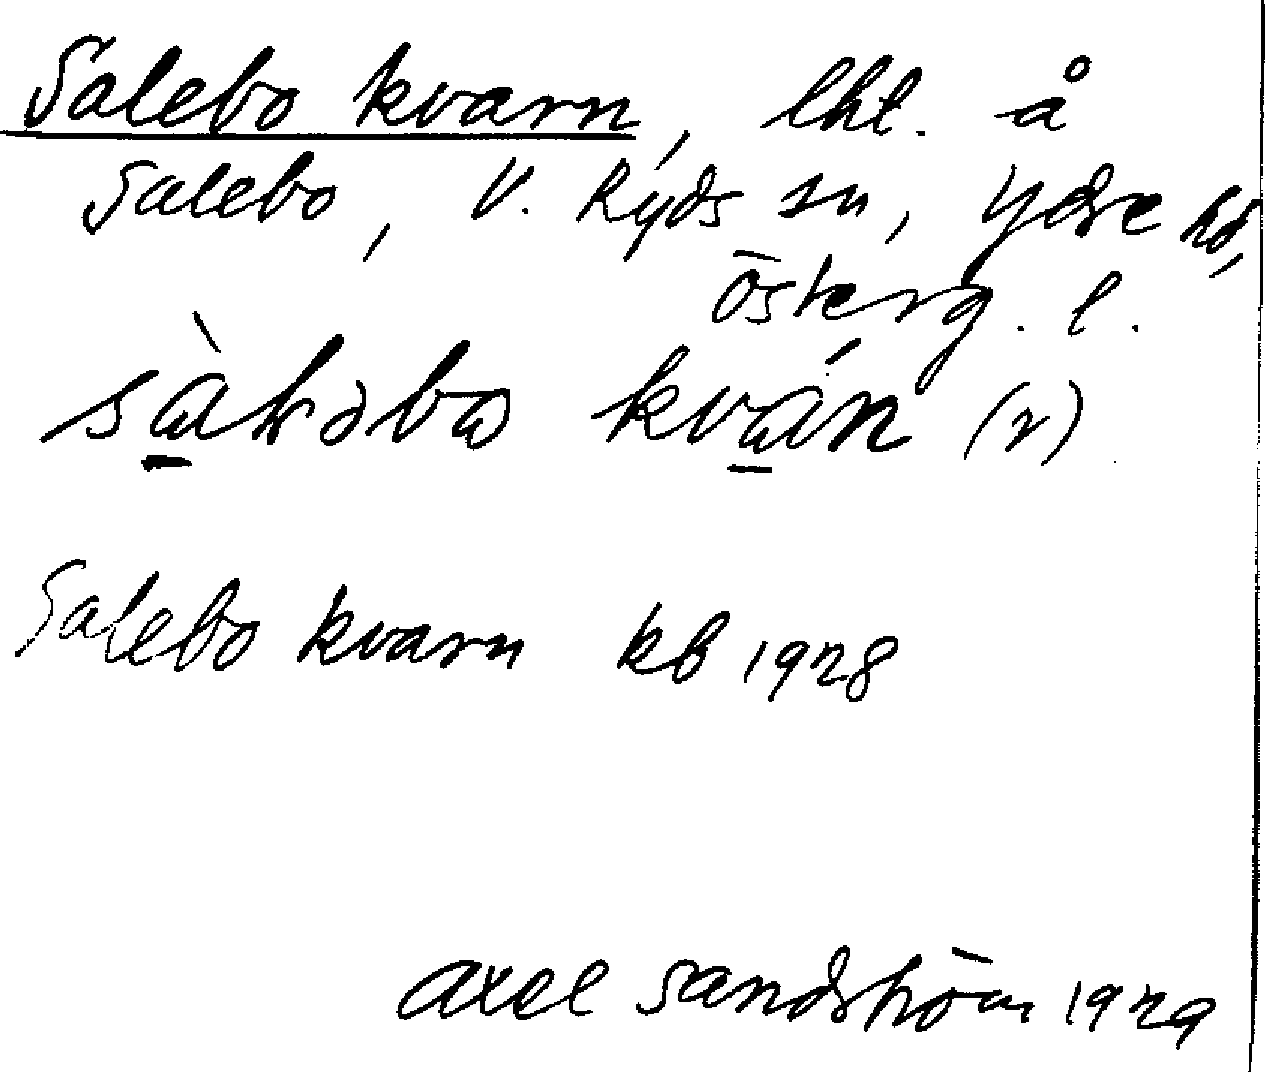 Salebo kvarn, lht. å
Salebo, V. Ryds sn, Ydre hd,
Österg. l.
kván (r)
Salebo kvarn kb 1928
Axel Sandström 1929